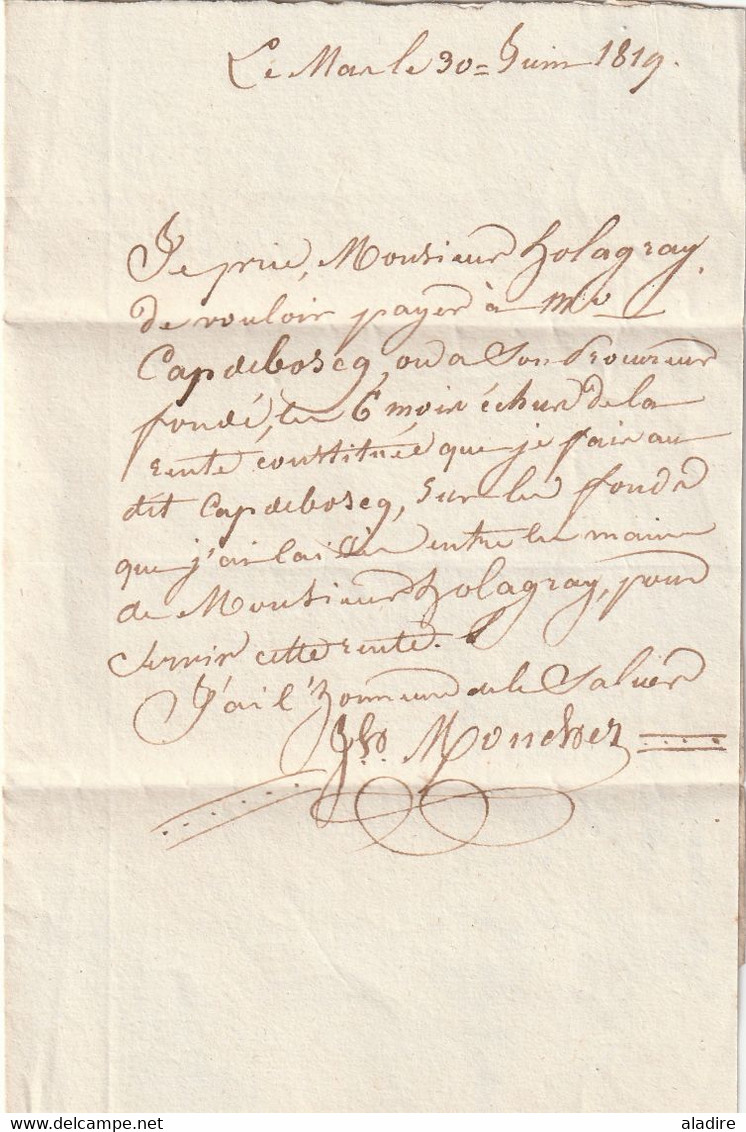 Le Mas le 30= Juin 1819.
Je prie, Monsieur Holagray,
de vouloir payer à Mr
Capdeboscq, ou a Son Procureur
fondé, les 6 mois échus de la
rente constituée que je fais au
dit Capdeboscq, Sur les fonds
que j'ai laissés entre les mains
de Monsieur Holagray, pour
servir cette rente.
J'ai l'honneur de le Saluer
Jh Mouchez
delcampe.net
aladire